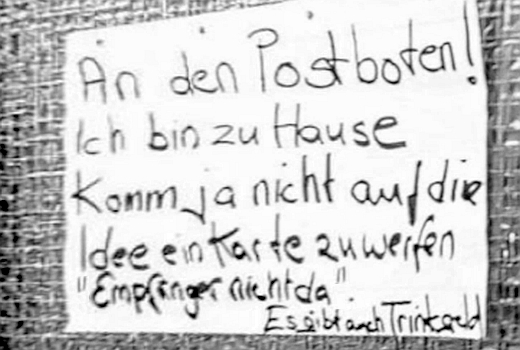 An den Postboten!
Ich bin zu Hause
Komm ja nicht auf die
Idee ein Karte zu werfen
"Empfänger nicht da".
Es gibt auch Trinkgeld